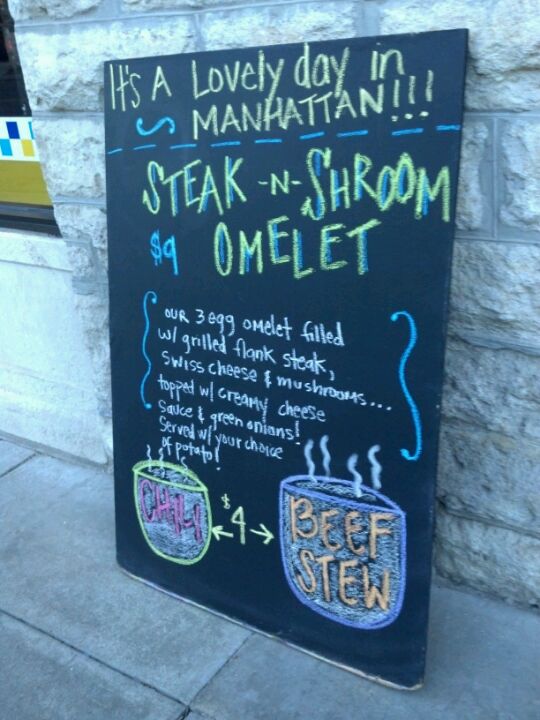 It's A Lovely day in
MANHATTAN!!!
STEAK -N- SHROOM
$9 OMELET
OUR 3 egg omelet filled
w/ grilled flank steak,
SWISS cheese & mushrooms...
topped w/ creamy cheese
Sauce & green onions!
Served w/ your choice
of potato!
CHILI
$4
BEEF
STEW